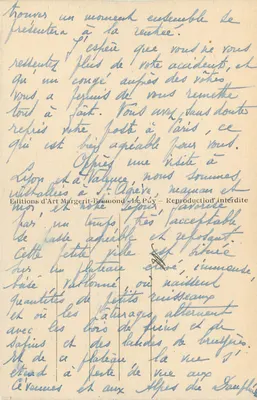 trouver un moment ensemble se
présentera à la rentrée.
J'espère que vous ne vous
ressentez plus de votre accident, et
qu'un congé auprès des vôtres
vous a permis de vous remettre
tout à fait. Vous avez sans doute
repris votre poste à Paris, ce
qui est bien agréable pour vous.
Après une visite à
Lyon et à Valence, nous sommes
installées à St Agrève, maman et
moi, et notre
Editions d'Art Margerit-Bremond - Le Puy - Reproduction interdite
par un temps très acceptable
se passe agréable et reposant.
Cette petite ville est située
sur un plateau élevé, immense,
boisé, vallonné, où naissent
quantités de petits ruisseaux
et où les pâturages alternent
avec les bois de pins et de
sapins et des landes de bruyères.
Et de ce plateau la vue s'
étend à perte de vue aux
Cévennes et aux Alpes du Dauphiné